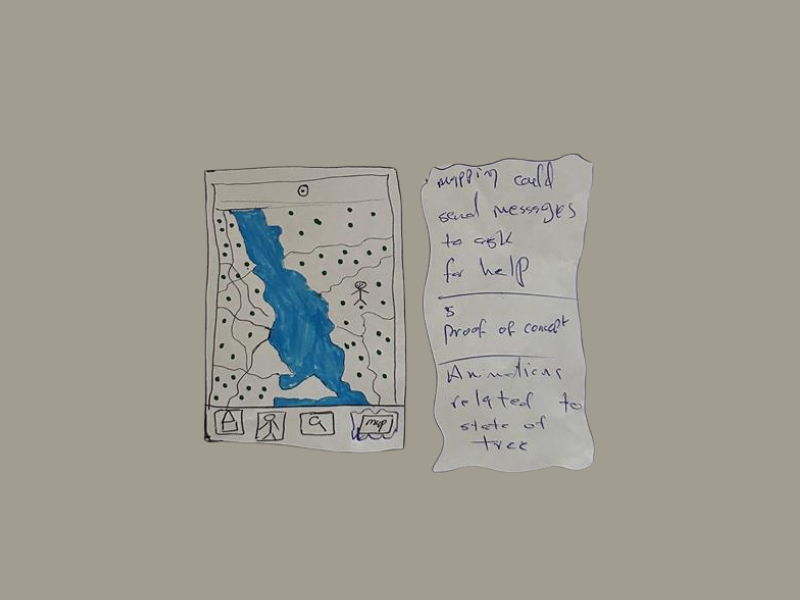 map
mapping could
send messages
to ask
for help
5
Proof of concept
Animations
related to
state of
tree